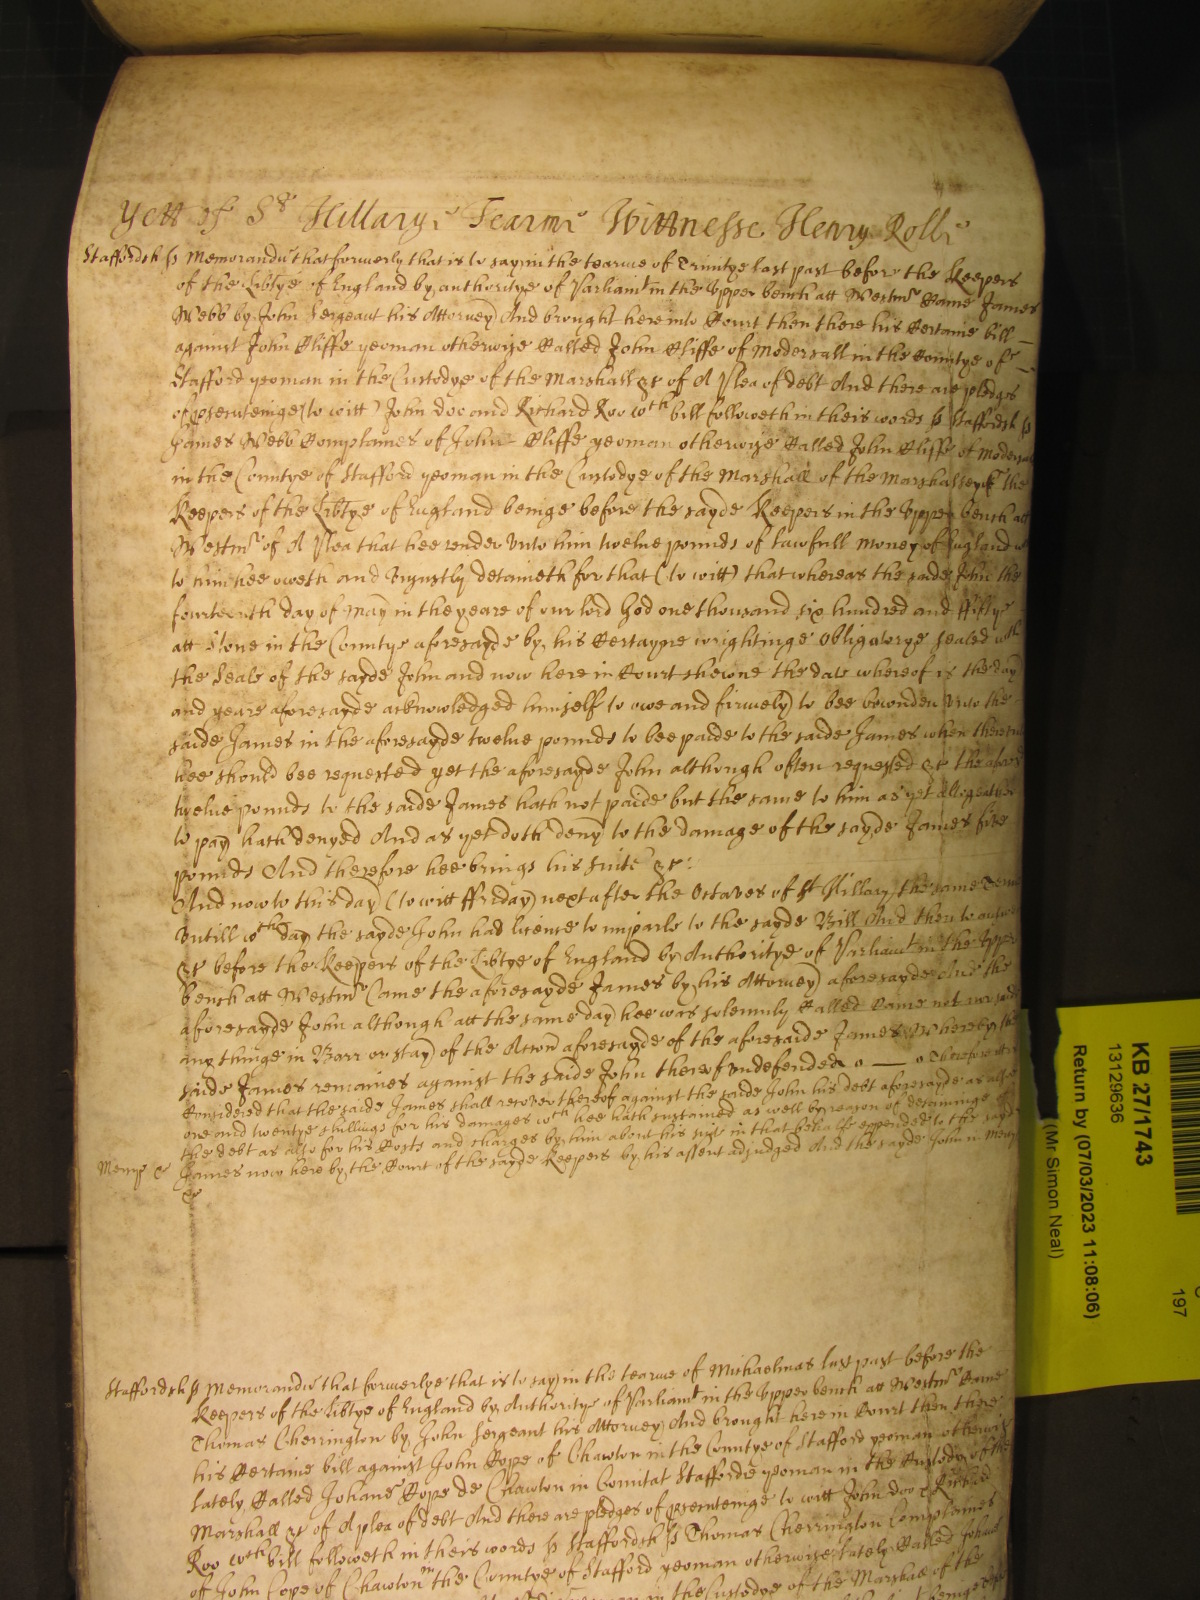 yett of St Hillary Tearme Wittnesse Henry Rolle
Staffordsh ss Memorandu that formerly that is to say in the tearme of Trinitye last past before the Keepers
of the Libtye of England by authoritye of Parliamt in the Upper bench att Westmr Came James
Webb by John Sergeant his Attorney And brought here into Court then there his Certaine bill
against John Cliffe yeoman otherwise Called John Cliffe of Modersall in the Countye of
Stafford yeoman in the Custodye of the Marshall &c of A Plea of debt And there are pledges
of prosecuteinge (to witt) John doe and Richard Roo wch bill followeth in theis words ss Staffordsh ss
James Webb Complaines of John Cliffe yeoman otherwise Called John Cliffe of Modersall
in the Countye of Stafford yeoman in the Custodye of the Marshall of the Marshallsey of the
Keepers of the Libtye of England beinge before the sayde Keepers in the Upper bench att
Westmr of A Plea that hee render unto him twelve pounds of lawfull money of England
to him hee oweth and Uniustly detaineth for that (to witt) that whereas the saide John the
fourteenth day of May in the yeare of our lord God one thousand six hundred and ffiftye
att Stone in the Countye aforesayde by his Certayne wrightinge Obligatorye sealed with
the Seale of the sayde John and now here in Court shewne the date whereof is the day
and yeare aforesayde acknowledged himself to owe and firmely to bee bounden unto the
saide James in the aforesayde twelve pounds to bee paide to the saide James when thereunto
hee should bee requested yet the aforesayde John although often requested &c the aforesd
twelve pounds to the saide James hath not paide but the same to him as yet altogeather
to pay hath denyed And as yet doth deny to the damage of the sayde James five
pounds And therefore hee brings his suite &c:
And now to this day (to witt ffriday) next after the Octaves of St Hillary the same Tearme
Untill wch day the sayde John had license to imparle to the sayde Bill And then to answer
&c before the Keepers of the Libtye of England by Authoritye of Parliamt in the Upper
bench att Westmr Came the aforesayde James by his Attorney aforesayde And the
aforesayde John although att the same day hee was solemnly Called Came not nor said
any thinge in Barr or stay of the Accon aforesayde of the aforesaide James Whereby the
saide James remaines against the saide John thereof undefended o — o Therefore itt is
Considered that the saide James shall recover thereof against the saide John his debt aforesayde as alsoe
one and twentye shillings for his damages wch hee hath sustained as well by reason of detaininge of
the debt as also for his Costs and charges by him about his suit in that behalfe expended to the sayde
Mercy &c James now here by the Court of the sayde Keepers by his assent adjudged And the sayde John in Mercy
&c
Staffordsh ss Memorandu that formerlye that is to say in the tearme of Michaelmas last past before the
Keepers of the Libtye of England by Authoritye of Parliamt in the Upper bench att Westmr Came
Thomas Cherrington by John Sergeant his Attorney And brought here in Court then there
his Certaine bill against John Cope of Chawton in the Countye of Stafford yeoman otherwise
lately Called Johanes Cope de Chawton in Comitat Staffordie yeoman in the Custodye of the
Marshall &c of A plea of debt And there are pledges of prosecuteinge to witt John doo & Richard
Roo wch bill followeth in theis words ss Staffordsh ss Thomas Cherrington Complaines
of John Cope of Chawton in the Countye of Stafford yeoman otherwise lately Called Johanes
yeoman in the Custodye of the Marshall of the
KB 27/1743
13129636
Return by (07/03/2023 11:08:06)
(Mr Simon Neal)
197